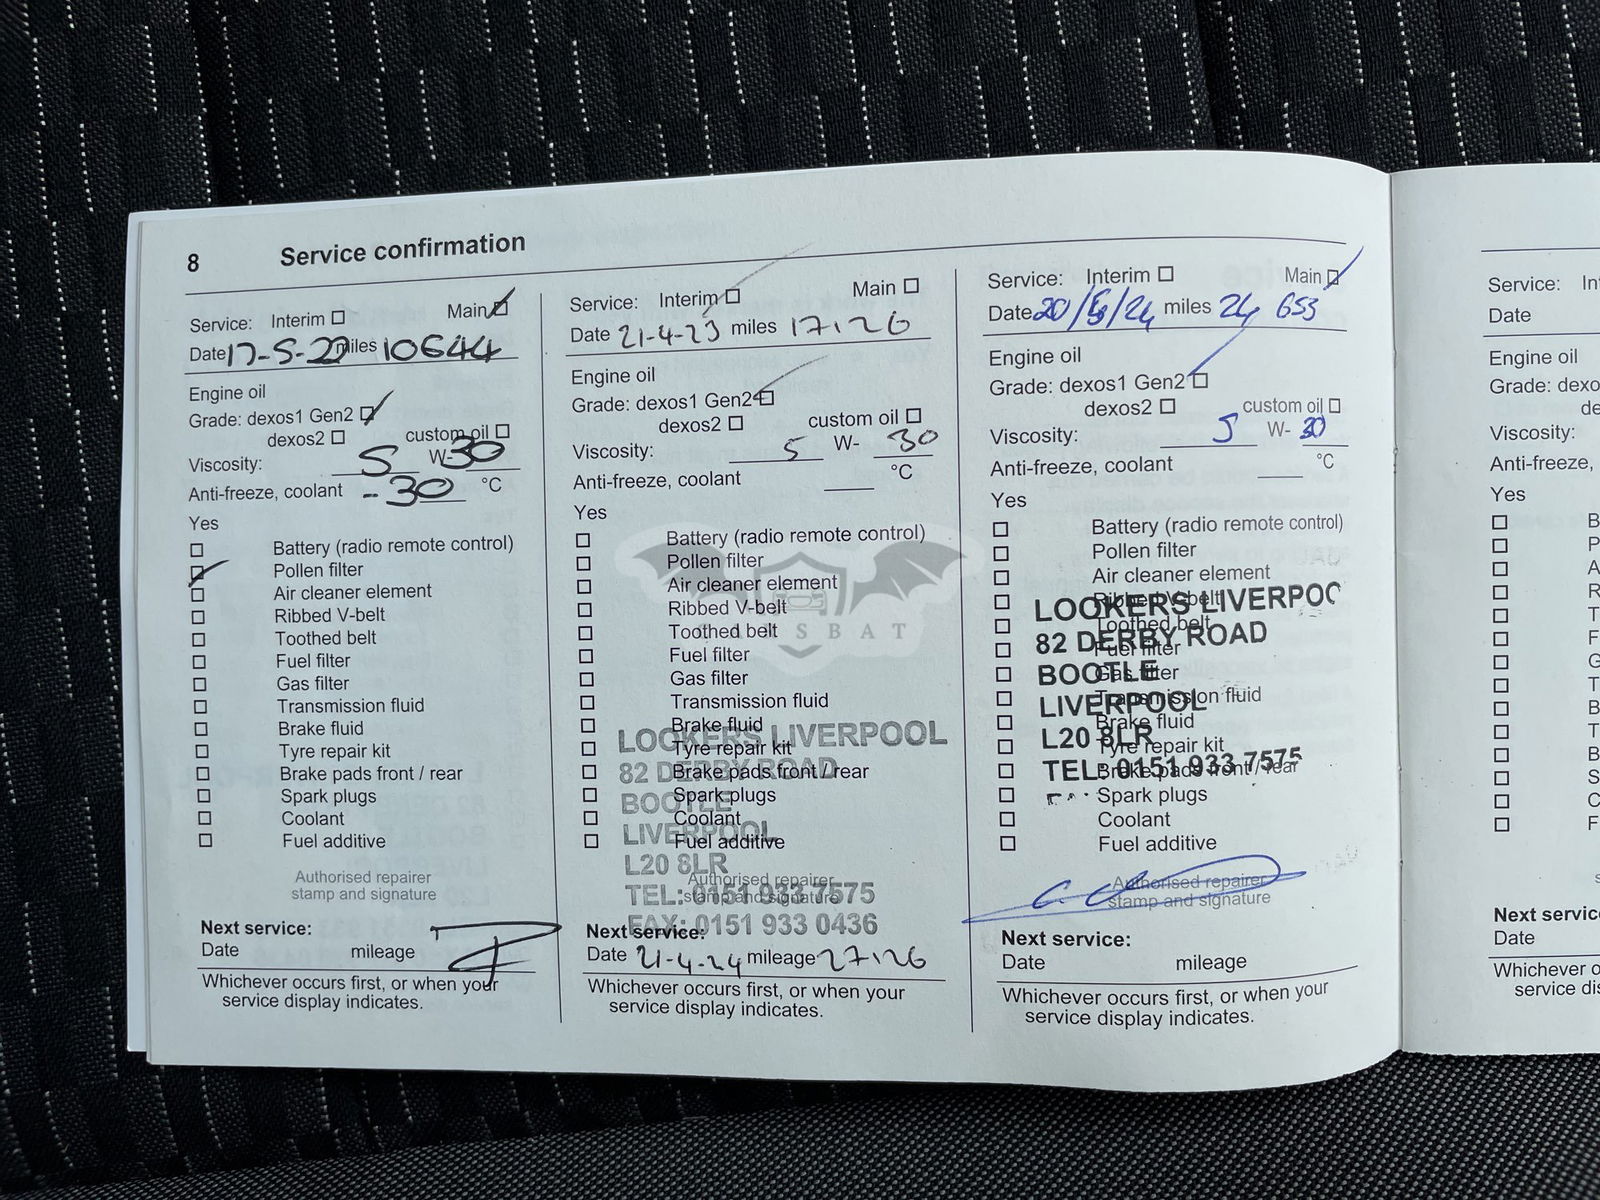 8 Service confirmation
Service: Interim Main
Date 17-5-22 miles 10644
Engine oil
Grade: dexos1 Gen2
dexos2 custom oil
Viscosity: 5 W-30
Anti-freeze, coolant -30 °C
Yes
Battery (radio remote control)
Pollen filter
Air cleaner element
Ribbed V-belt
Toothed belt
Fuel filter
Gas filter
Transmission fluid
Brake fluid
Tyre repair kit
Brake pads front / rear
Spark plugs
Coolant
Fuel additive
Authorised repairer
stamp and signature
Next service:
Date mileage
Whichever occurs first, or when your
service display indicates.
Service: Interim Main
Date 21-4-23 miles 17126
Engine oil
Grade: dexos1 Gen2
dexos2 custom oil
Viscosity: 5 W- 30
Anti-freeze, coolant °C
Yes
Battery (radio remote control)
Pollen filter
Air cleaner element
Ribbed V-belt
Toothed belt
Fuel filter
Gas filter
Transmission fluid
Brake fluid
Tyre repair kit
Brake pads front / rear
Spark plugs
Coolant
Fuel additive
LOOKERS LIVERPOOL
82 DERBY ROAD
BOOTLE
LIVERPOOL
L20 8LR
TEL: 0151 933 7575
FAX: 0151 933 0436
Authorised repairer
stamp and signature
Next service:
Date 21-4-24 mileage 27126
Whichever occurs first, or when your
service display indicates.
Service: Interim Main
Date 20/5/24 miles 24 653
Engine oil
Grade: dexos1 Gen2
dexos2 custom oil
Viscosity: 5 W- 30
Anti-freeze, coolant °C
Yes
Battery (radio remote control)
Pollen filter
Air cleaner element
Ribbed V-belt
Toothed belt
Fuel filter
Gas filter
Transmission fluid
Brake fluid
Tyre repair kit
Brake pads front / rear
Spark plugs
Coolant
Fuel additive
LOOKERS LIVERPOO
82 DERBY ROAD
BOOTLE
LIVERPOOL
L20 8LR
TEL: 0151 933 7575
Authorised repairer
stamp and signature
Next service:
Date mileage
Whichever occurs first, or when your
service display indicates.
Service: In
Date
Engine oil
Grade: dexo
de
Viscosity:
Anti-freeze,
Yes
B
P
A
R
T
F
G
T
B
T
B
S
C
F
Next servic
Date
Whichever o
service dis